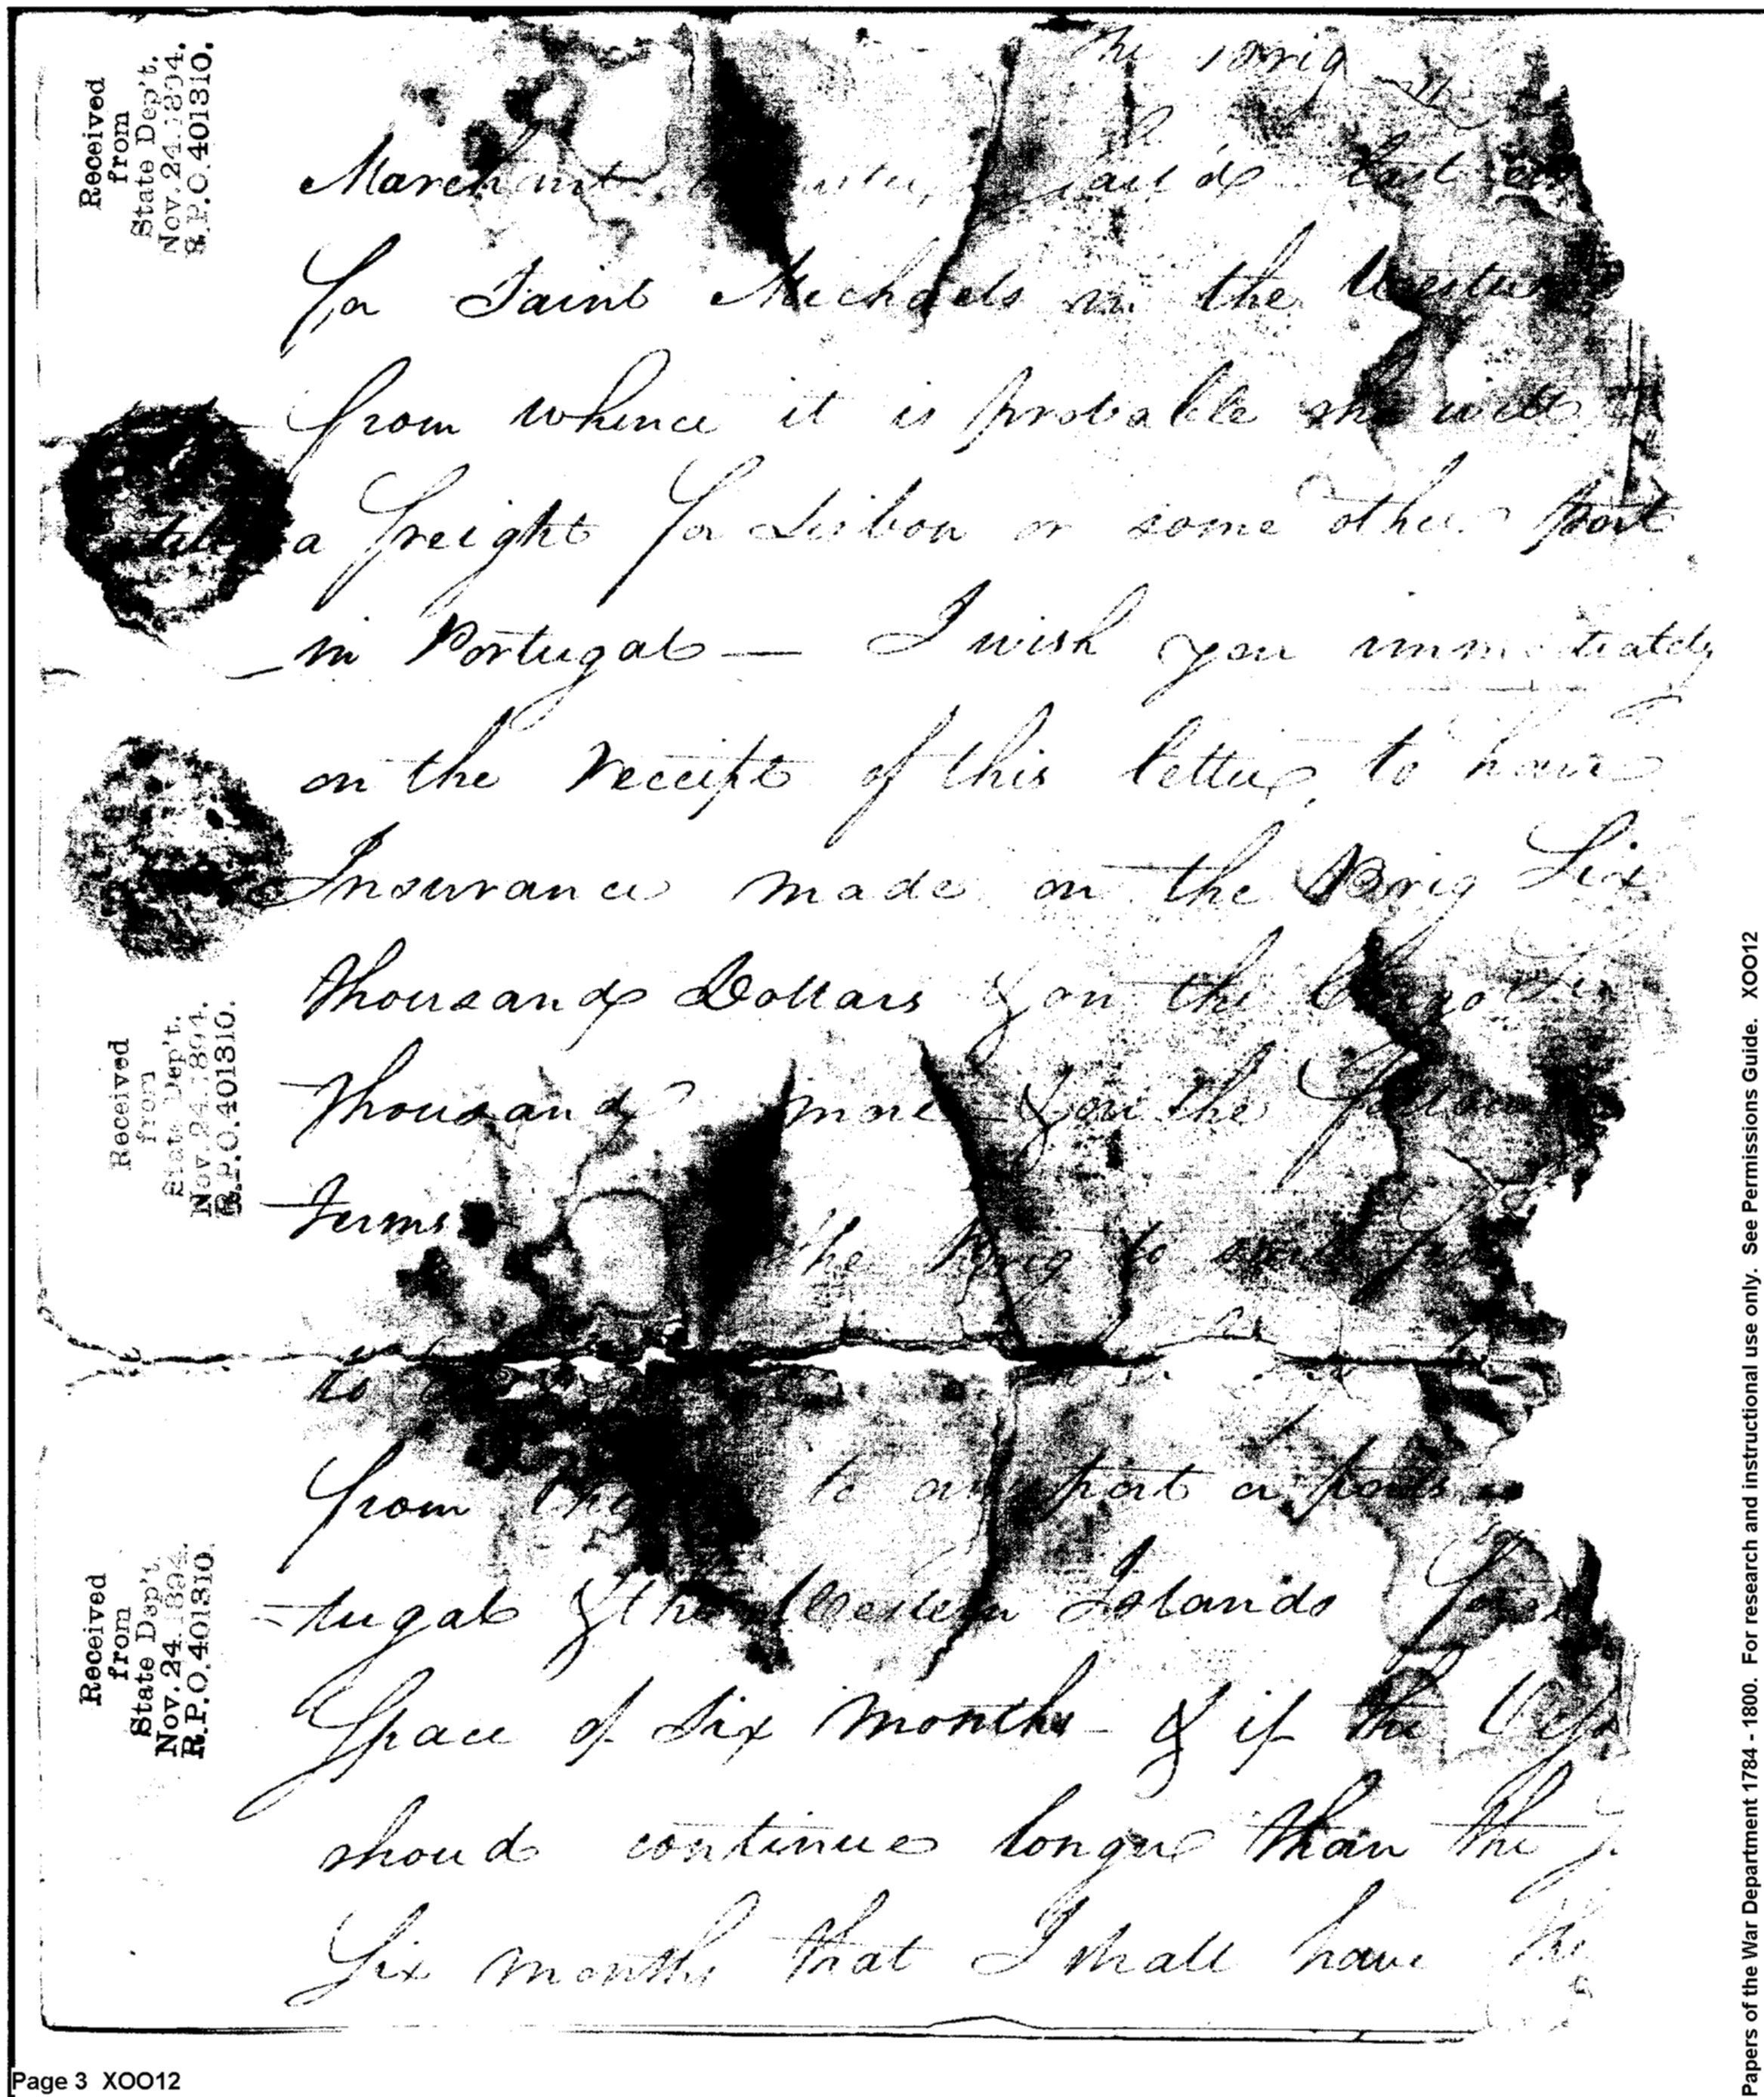 the Brig
Marchant sail'd last
for Saint Michaels in the Western
from whence it is probable she will
take a freight for Lisbon or some other port
in Portugal — I wish you immediately
on the receipt of this letter, to have
Insurance made on the Brig Six
thousand Dollars & on the Cargo Six
thousand more & on the following
Terms the Brig to sail
to
from to any port or ports
-tugal & the Western Islands for
Space of Six months - & if the
shoud continue longer than the
Six months that I shall have the
Received
from
State Dep't.
Nov. 24. 1894.
R.P.O. 401310.
Received
from
State Dep't.
Nov. 24. 1894.
R.P.O. 401310.
Received
from
State Dep't.
Nov. 24. 1894.
R.P.O. 401310.
Papers of the War Department 1784 - 1800. For research and instructional use only. See Permissions Guide. XOO12
Page 3 XOO12